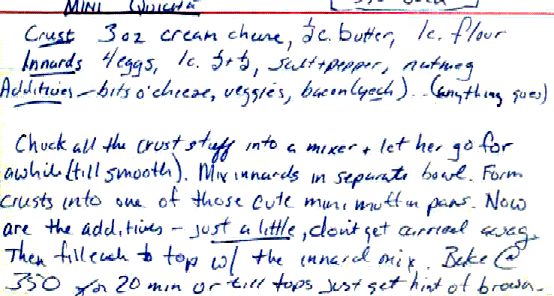 MINI Quiche
Crust 3 oz cream cheese, ½ c. butter, 1c. flour
Innards 4 eggs, 1c. ½+½, salt+pepper, nutmeg
Additives - bits o'cheese, veggies, bacon (yech)... (anything goes)
Chuck all the crust stuff into a mixer + let her go for
awhile (till smooth). Mix innards in separate bowl. Form
crusts into one of those cute mini muffin pans. Now
are the additives - just a little, don't get carried away.
Then fill each to top w/ the innard mix. Bake @
350 for 20 min or till tops just get hint of brown.